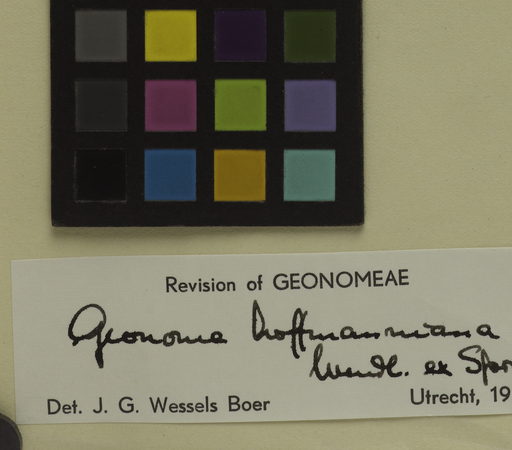 Revision of GEONOMEAE
Geonoma hoffmanniana
Wendl. ex Spar
Det. J. G. Wessels Boer
Utrecht, 19